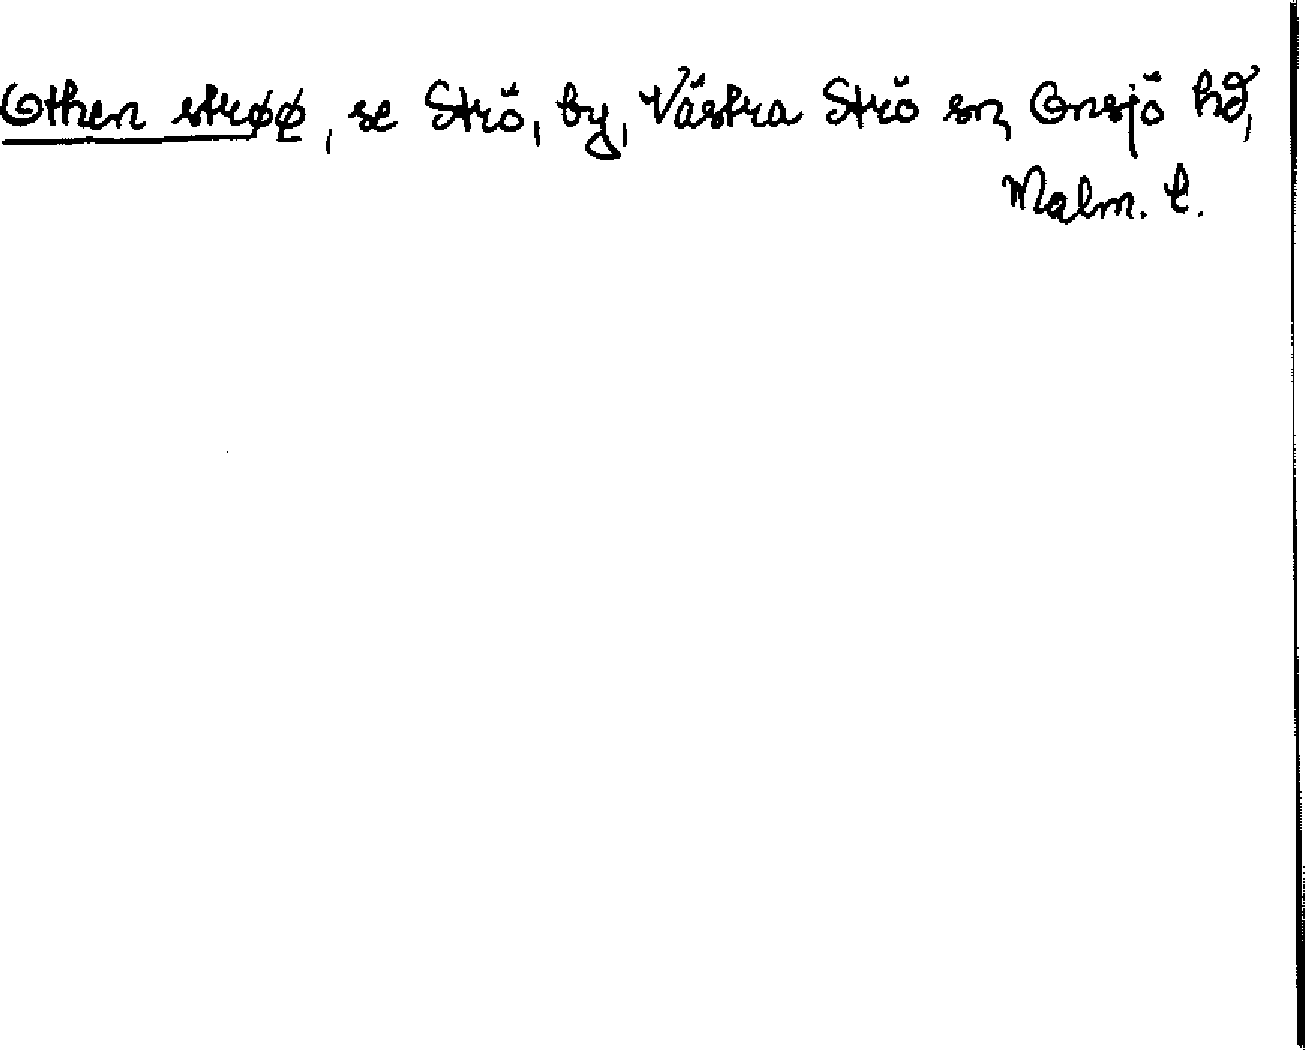 Othen strøø, se Strö, by, Västra Strö sn, Onsjö hd,
Malm. l.